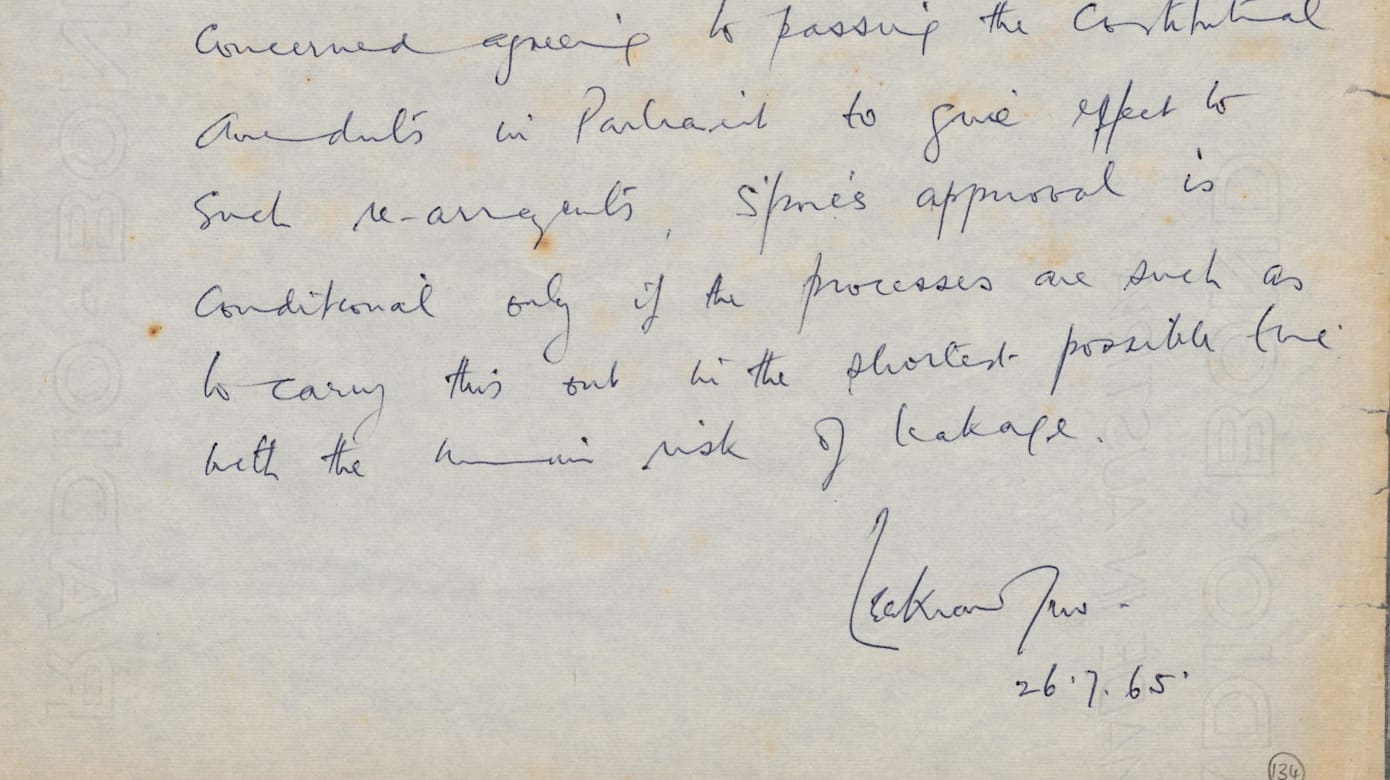 Concerned agreeing to passing the Constitutional
Amendments in Parliament to give effect to
such re-arrangements, S'pore's approval is
conditional only if the processes are such as
to carry this out in the shortest possible time
with the minimum risk of leakage.
Lee Kuan Yew
26.7.65
134
RADIO BOND
RADIO BOND